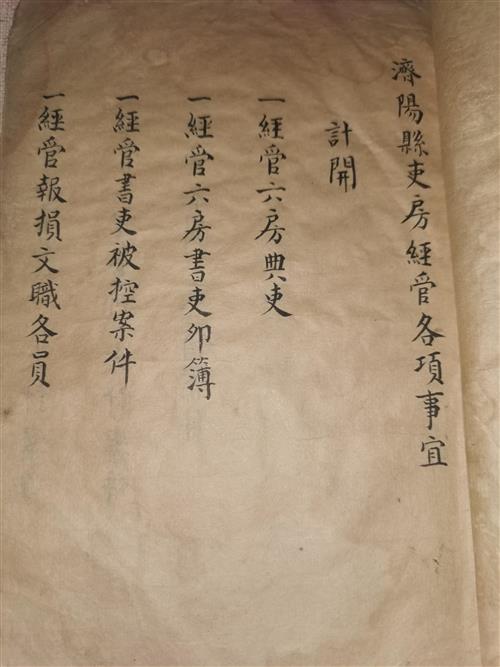 濟陽縣吏房經管各項事宜
計開
一經管六房典吏
一經管六房書吏卯簿
一經管書吏被控案件
一經管報損文職各員